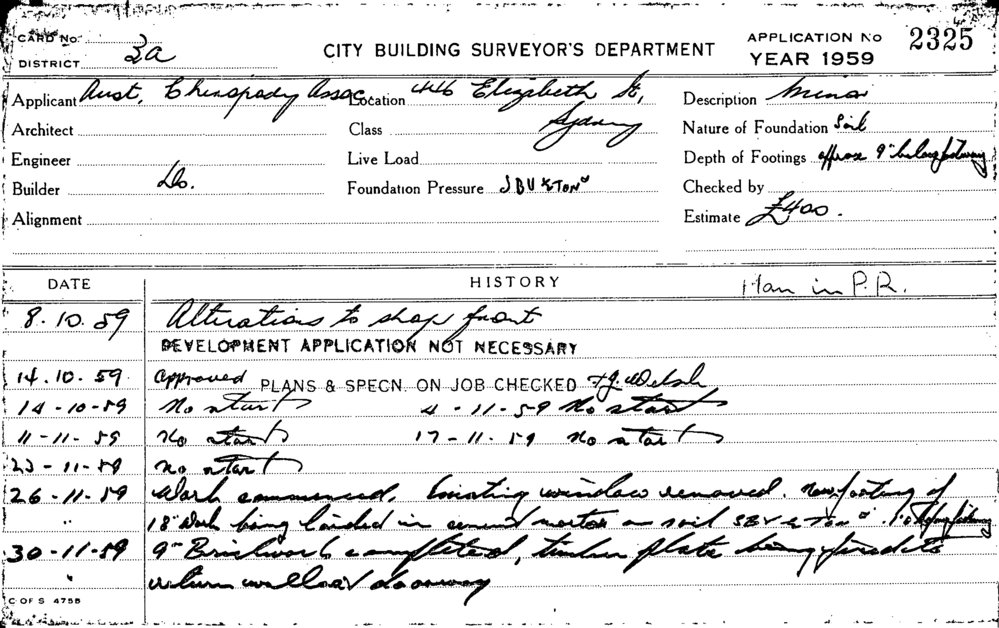 CARD No.
DISTRICT 2a
CITY BUILDING SURVEYOR'S DEPARTMENT
APPLICATION No 2325
YEAR 1959
Applicant Aust. Chiropody Assoc
Location 446 Elizabeth St,
Sydney
Description Minor
Architect
Class
Nature of Foundation Soil
Engineer
Live Load
Depth of Footings approx 9" below footway
Builder Do.
Foundation Pressure SBV
Checked by
Alignment
Estimate £400.
DATE
HISTORY
Plan in P.R.
8.10.59 Alterations to shop front
DEVELOPMENT APPLICATION NOT NECESSARY
14.10.59 Approved PLANS & SPECN. ON JOB CHECKED F.J. Welsh
14-10-59 No start 4-11-59 No start
11-11-59 No start 17-11-59 No start
23-11-59 No start
26-11-59 Work commenced. Existing window removed. New footing of
" 18" work being landed in cement mortar on soil SBV footway
30-11-59 9" Brickwork completed, timber plate being fixed to
" return wall at doorway
C OF S 475B